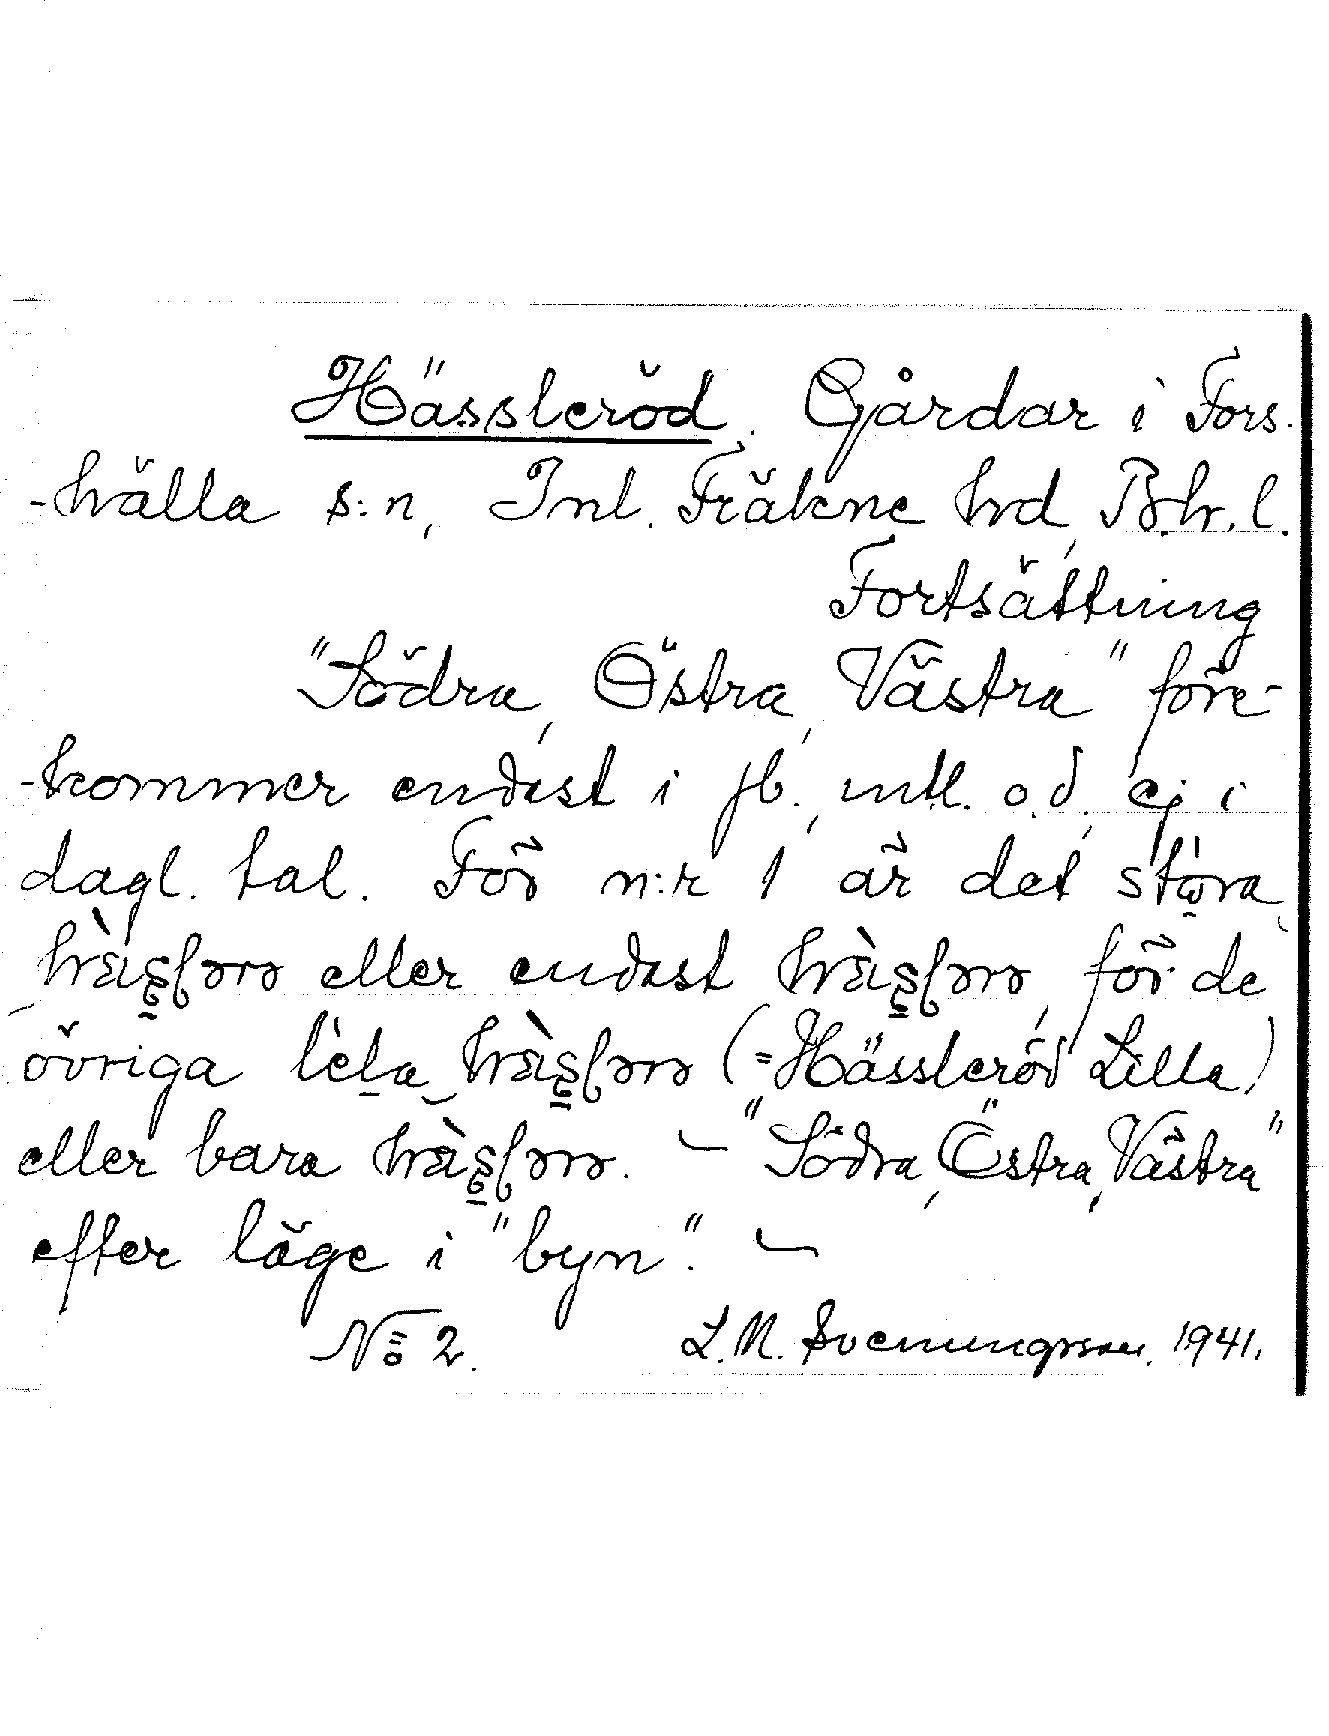 Hässleröd. Gårdar i Fors-
-hälla s:n, Inl. Fräkne hd, Boh. l.
Fortsättning
"Södra, Östra, Västra" före-
-kommer endast i jb., mtl. o.d., ej i
dagl. tal. För n:r 1 är det stora
eller endast för de
övriga (=Hässleröd Lilla)
eller bara — "Södra, Östra, Västra"
efter läge i "byn". —
No 2. L.M. Svenungsson. 1941.